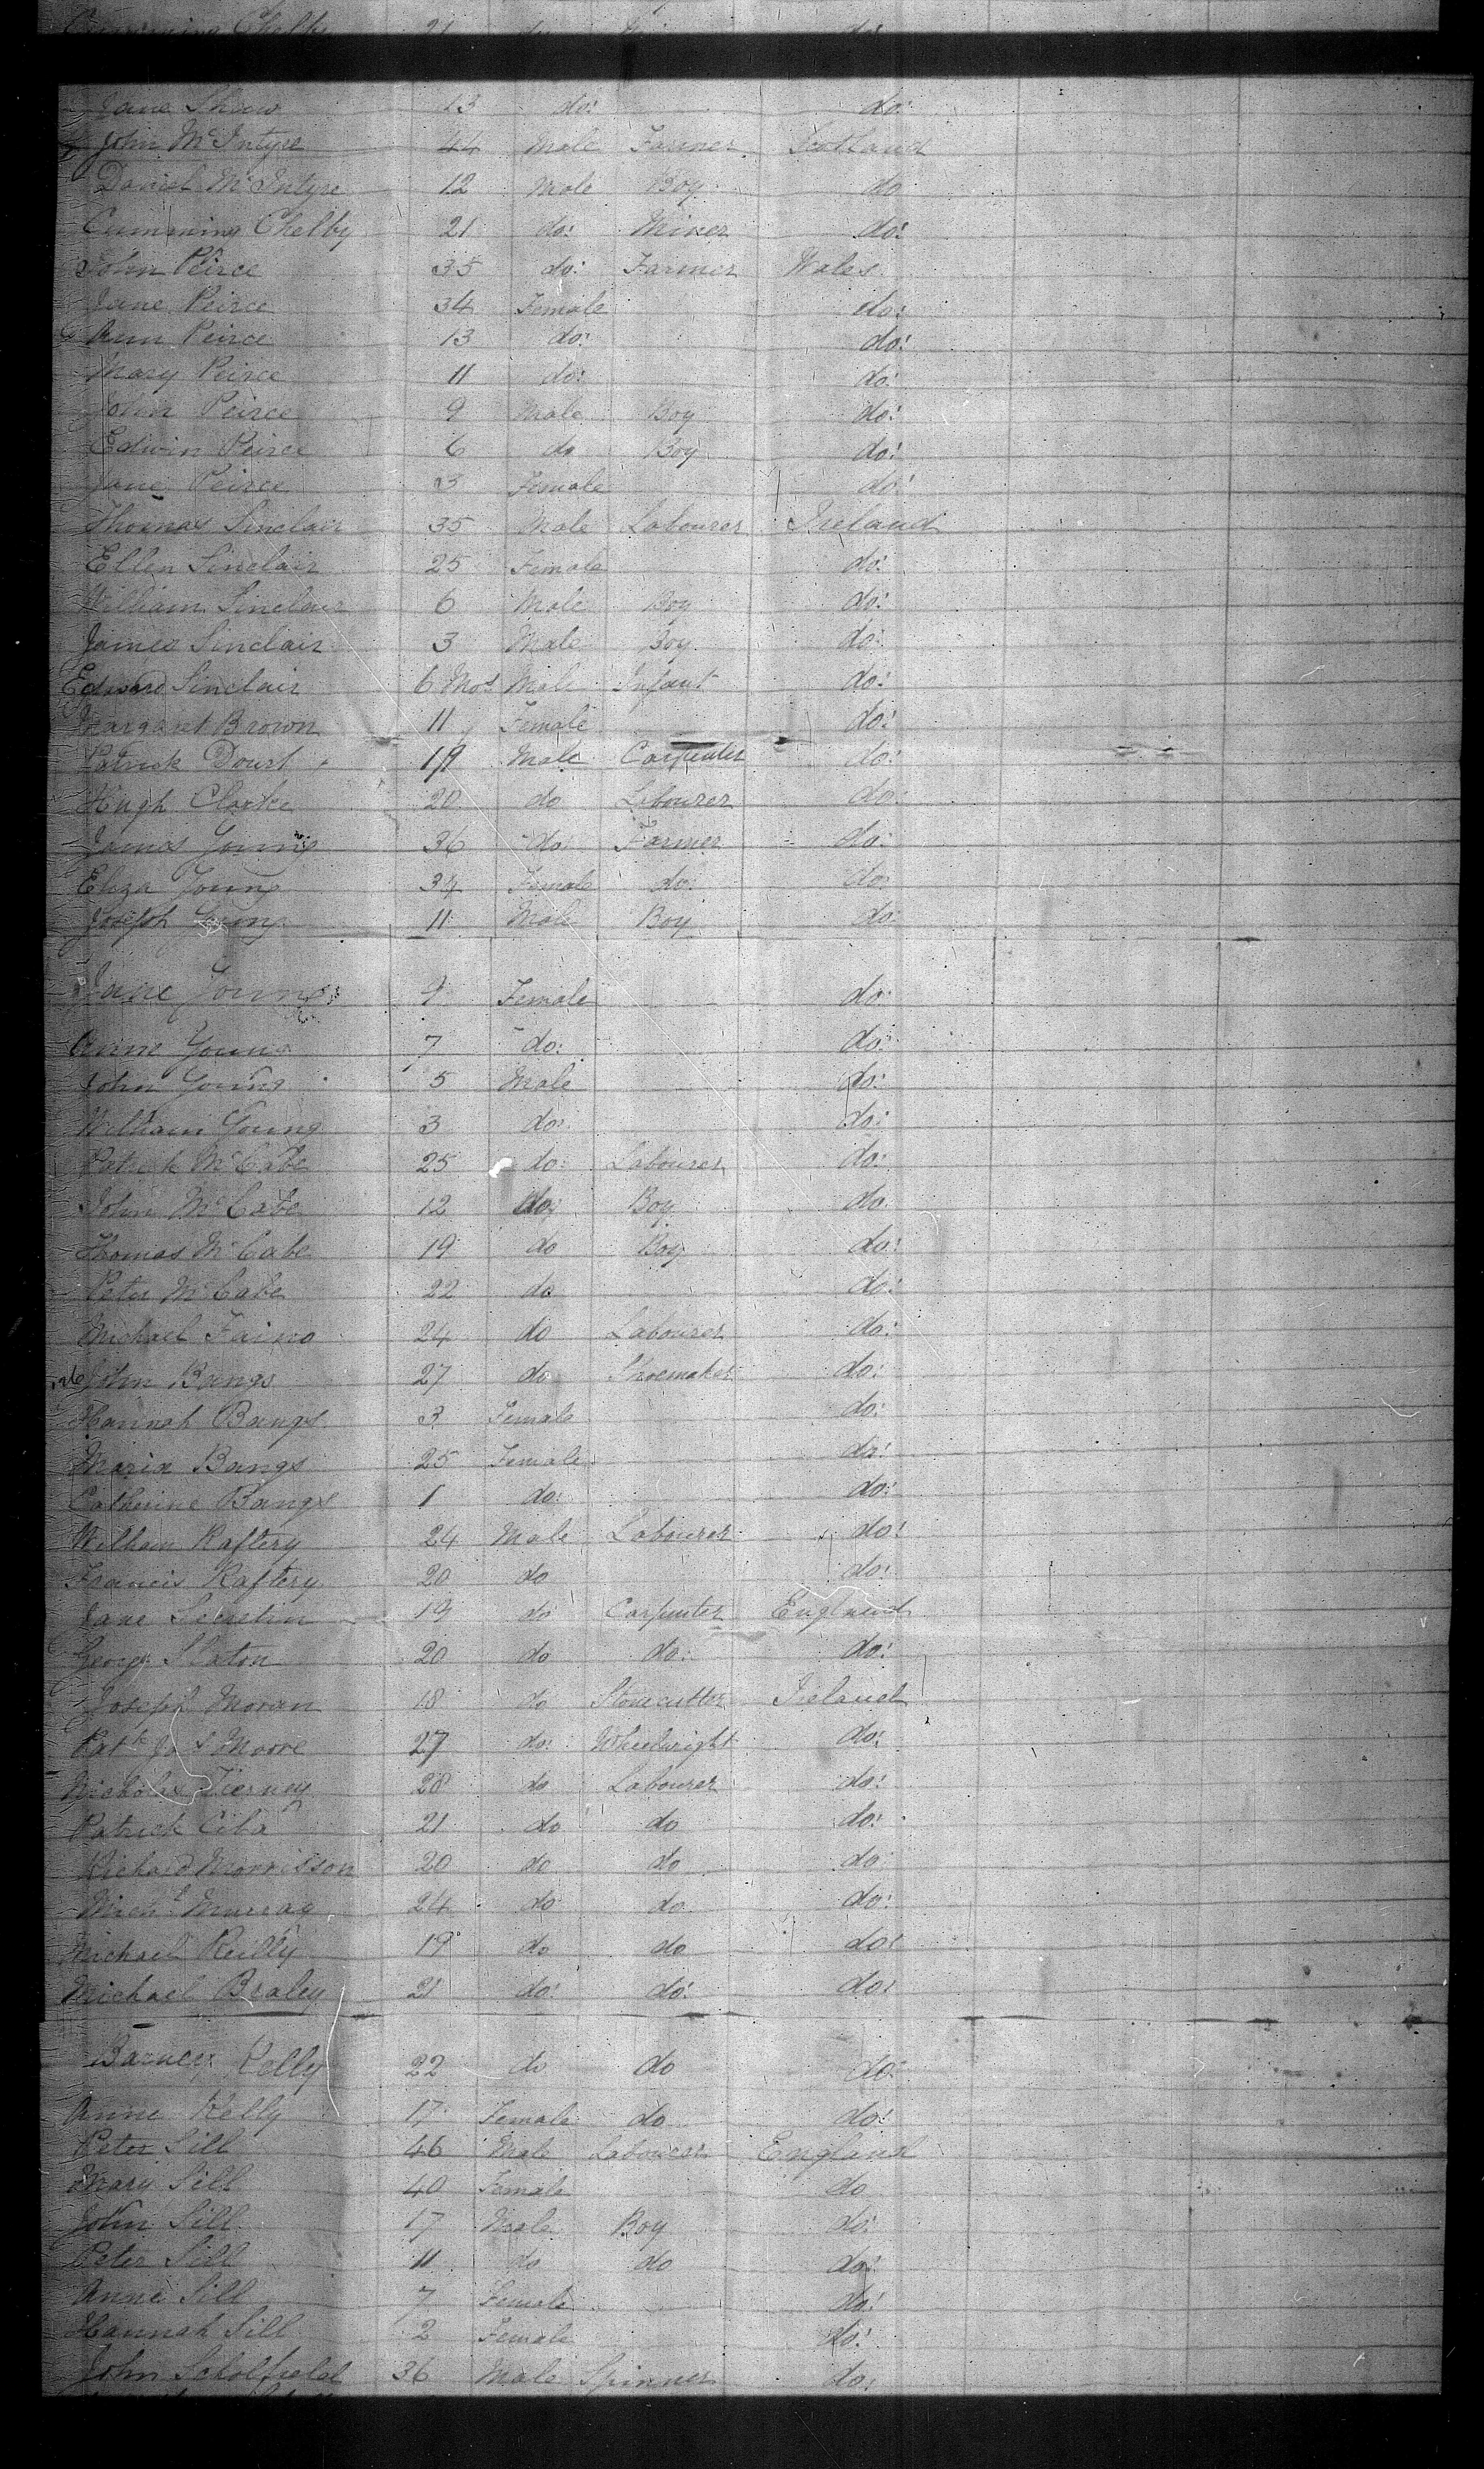 Cumming Chelby 21 do
Jane Shaw 13 do: do:
John McIntyre 44 Male Farmer Scotland
Daniel McIntyre 12 Male Boy do
Cumming Chelby 21 do: Miner do:
John Peirce 35 do: Farmer Wales
Jane Peirce 34 Female do:
Ann Peirce 13 do: do:
Mary Peirce 11 do: do:
John Peirce 9 Male Boy do:
Edwin Peirce 6 do Boy do:
Jane Peirce 3 Female do:
Thomas Sinclair 35 Male Labourer Ireland
Ellen Sinclair 25 Female do:
William Sinclair 6 Male Boy do:
James Sinclair 3 Male Boy do:
Edward Sinclair 6 Mos Male Infant do:
Margaret Brown 11 Female do:
Patrick 19 Male Carpenter do:
Hugh Clarke 20 do Labourer do:
James Young 36 do Farmer do:
Eliza Young 34 Female do: do:
Joseph Young 11 Male Boy do:
Jane Young 9 Female do:
Anne Young 7 do: do:
John Young 5 Male do:
William Young 3 do: do:
Patrick McCabe 25 do: Labourer do:
John McCabe 12 do Boy do.
Thomas McCabe 19 do Boy do:
Peter McCabe 22 do do:
Michael 24 do Labourer do:
John Bangs 27 do Shoemaker do:
Hannah Bangs 3 Female do:
Maria Bangs 25 Female do:
Catherine Bangs 1 do: do:
William Raftery 24 Male Labourer do:
Francis Raftery 20 do do:
Jane Secretin 19 do Carpenter England
George Slaton 20 do do: do:
Joseph Moran 18 do Stonecutter Ireland
Patk Jos Moore 27 do: Wheelwright do:
Nicholas Tierney 28 do Labourer do:
Patrick 21 do do do:
Richard Morrisson 20 do do do:
Michl Murray 24 do do do:
Michael Reilly 19 do do do:
Michael Braley 21 do: do: do:
Barney Kelly 22 do do do:
Anne Kelly 17 Female do do:
Peter Sill 46 Male Labourer England
Mary Sill 40 Female do
John Sill 17 Male Boy do:
Peter Sill 11 do do do:
Anne Sill 7 Female do:
Hannah Sill 2 Female do:
John Scholfield 36 Male Spinner do: